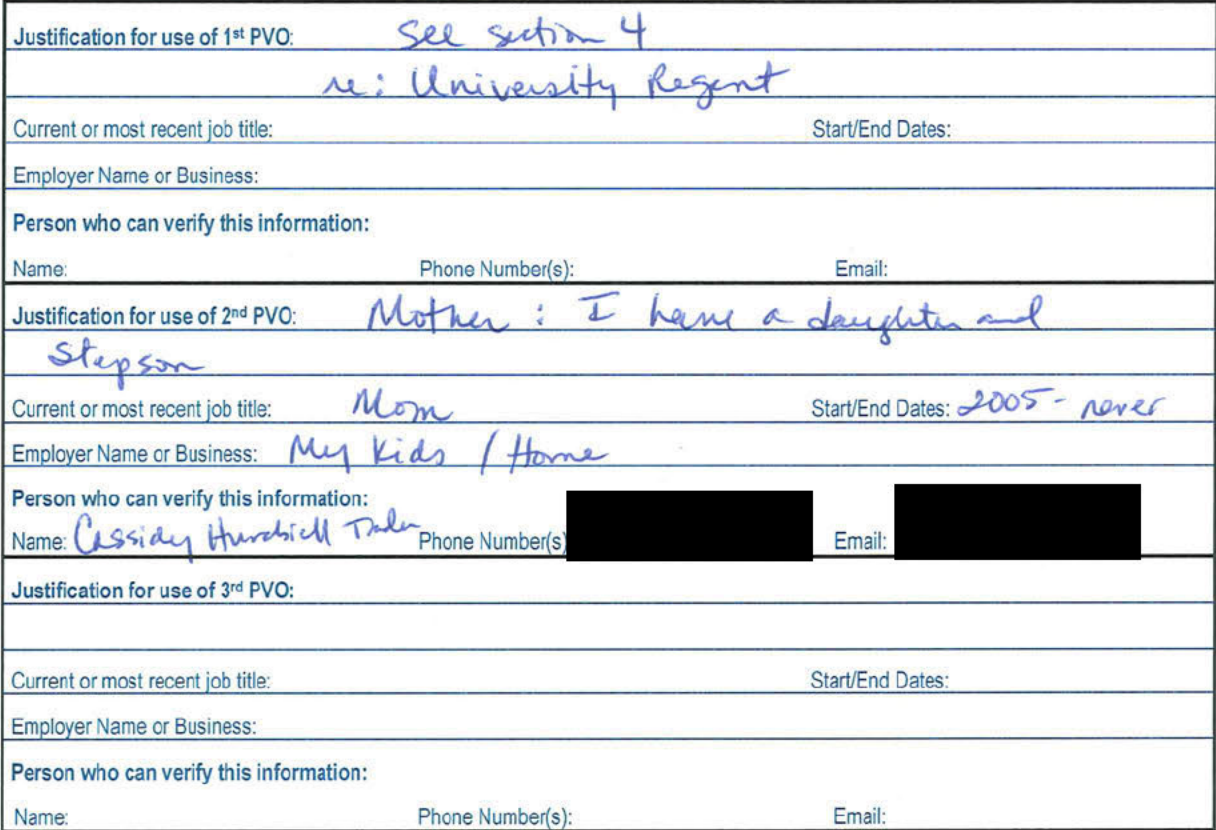 Justification for use of 1st PVO: See section 4
re: University Regent
Current or most recent job title: Start/End Dates:
Employer Name or Business:
Person who can verify this information:
Name: Phone Number(s): Email:
Justification for use of 2nd PVO: Mother: I have a daughter and
Stepson
Current or most recent job title: Mom Start/End Dates: 2005 - never
Employer Name or Business: My Kids / Home
Person who can verify this information:
Name: Cassidy Phone Number(s) Email:
Justification for use of 3rd PVO:
Current or most recent job title: Start/End Dates:
Employer Name or Business:
Person who can verify this information:
Name: Phone Number(s): Email: